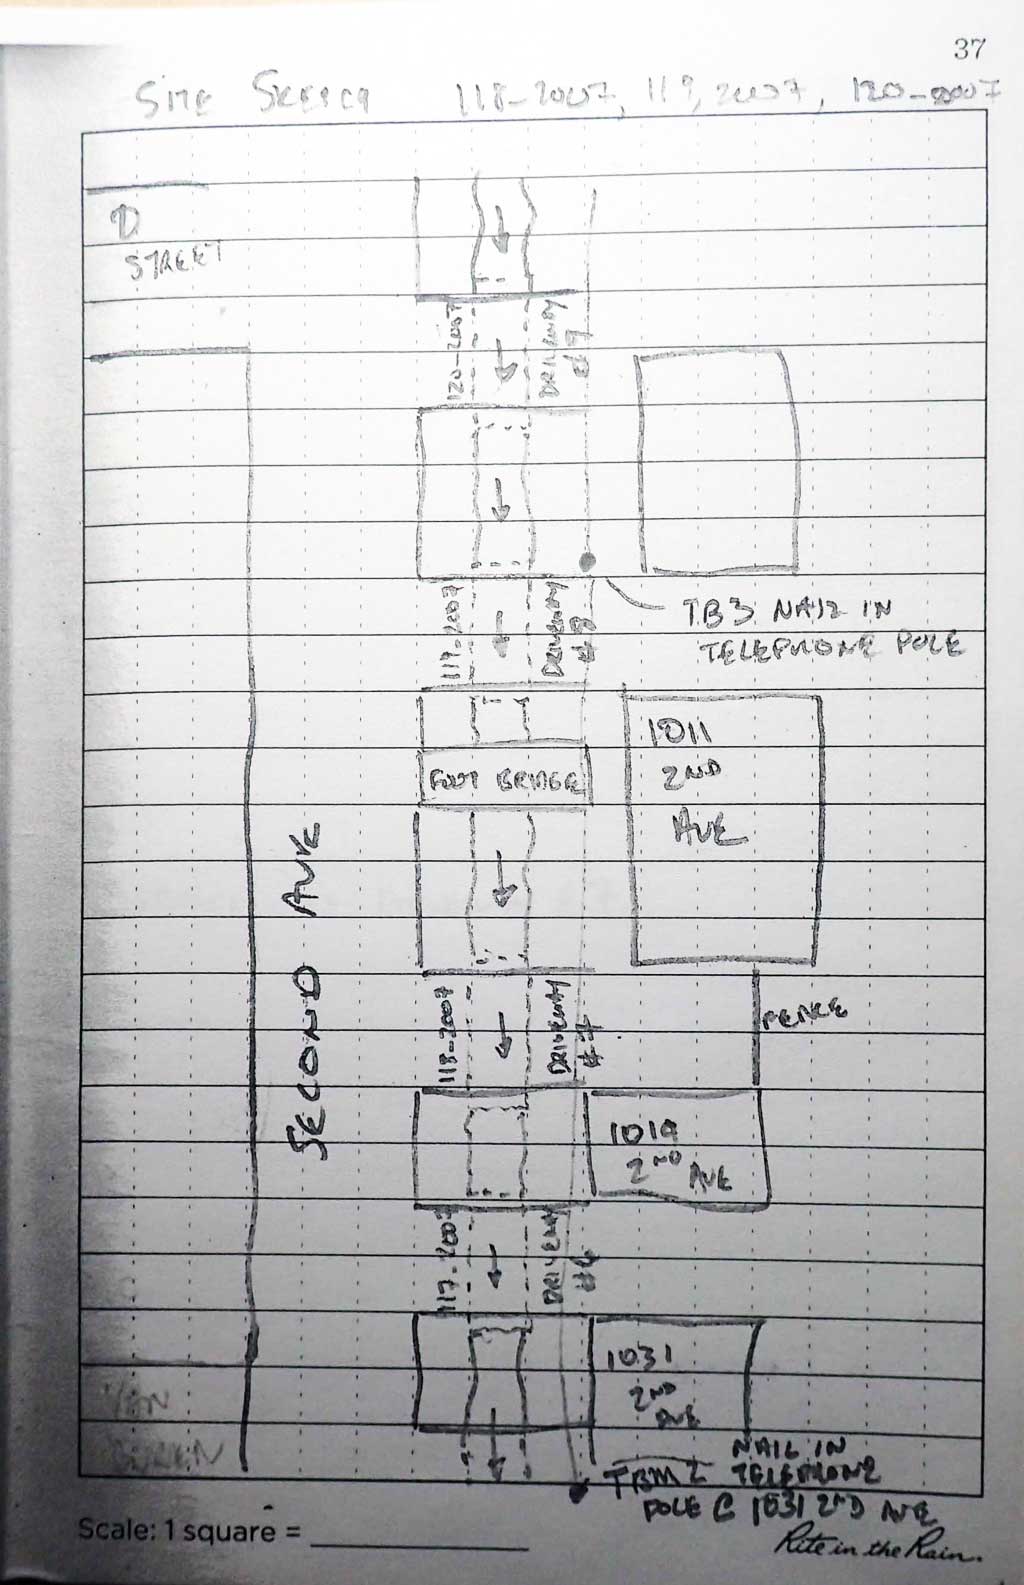 37
SITE SKETCH 118-2007, 119, 2007, 120-2007
D
STREET
120-2007
DRIVEWAY
#9
119-2007
DRIVEWAY
#8
TB3 NAIL IN
TELEPHONE POLE
1011
2ND
AVE
FOOT BRIDGE
SECOND AVE
118-2007
DRIVEWAY
#7
FENCE
1019
2ND AVE
117-2007
DRIVEWAY
#6
1031
2ND
AVE
VAN
BUREN
TBM 2 NAIL IN
TELEPHONE
POLE @ 1031 2ND AVE
Scale: 1 square =
Rite in the Rain.